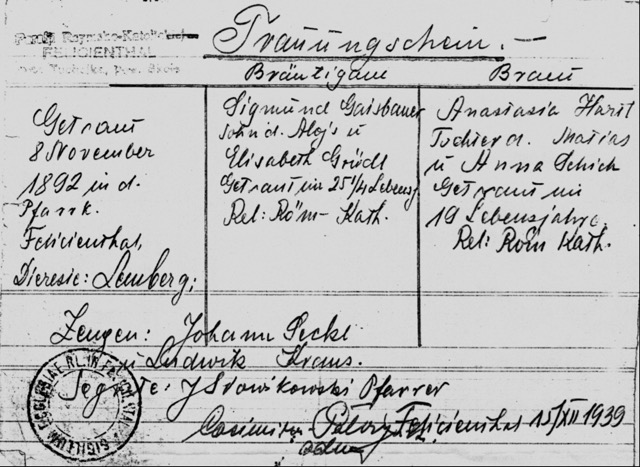 Parafja Rzymsko-Katolicka
FELICIENTHAL
Trauungschein.—
Bräutigam
Braut
Getraut
8 November
1892 in d.
Pfarrk.
Felicienthal,
Dieresie: Lemberg;
Sigmund Gaisbauer
Sohn d. Alojs u
Elisabeth Grödl
Getraut im 25 1/4 Lebensj
Rel: Röm-Kath.
Anastasia Hartl
Tochter d. Matias
u Anna Schich
Getraut im
19 Lebensjahre
Rel: Röm Kath.
Zeugen: Johann Seckl
u Ludwik Kraus.
Segnete: J Slowikowski Pfarrer
Casimirus Felicienthal 15/XII 1939
SIGILLUM ECCLESIAE